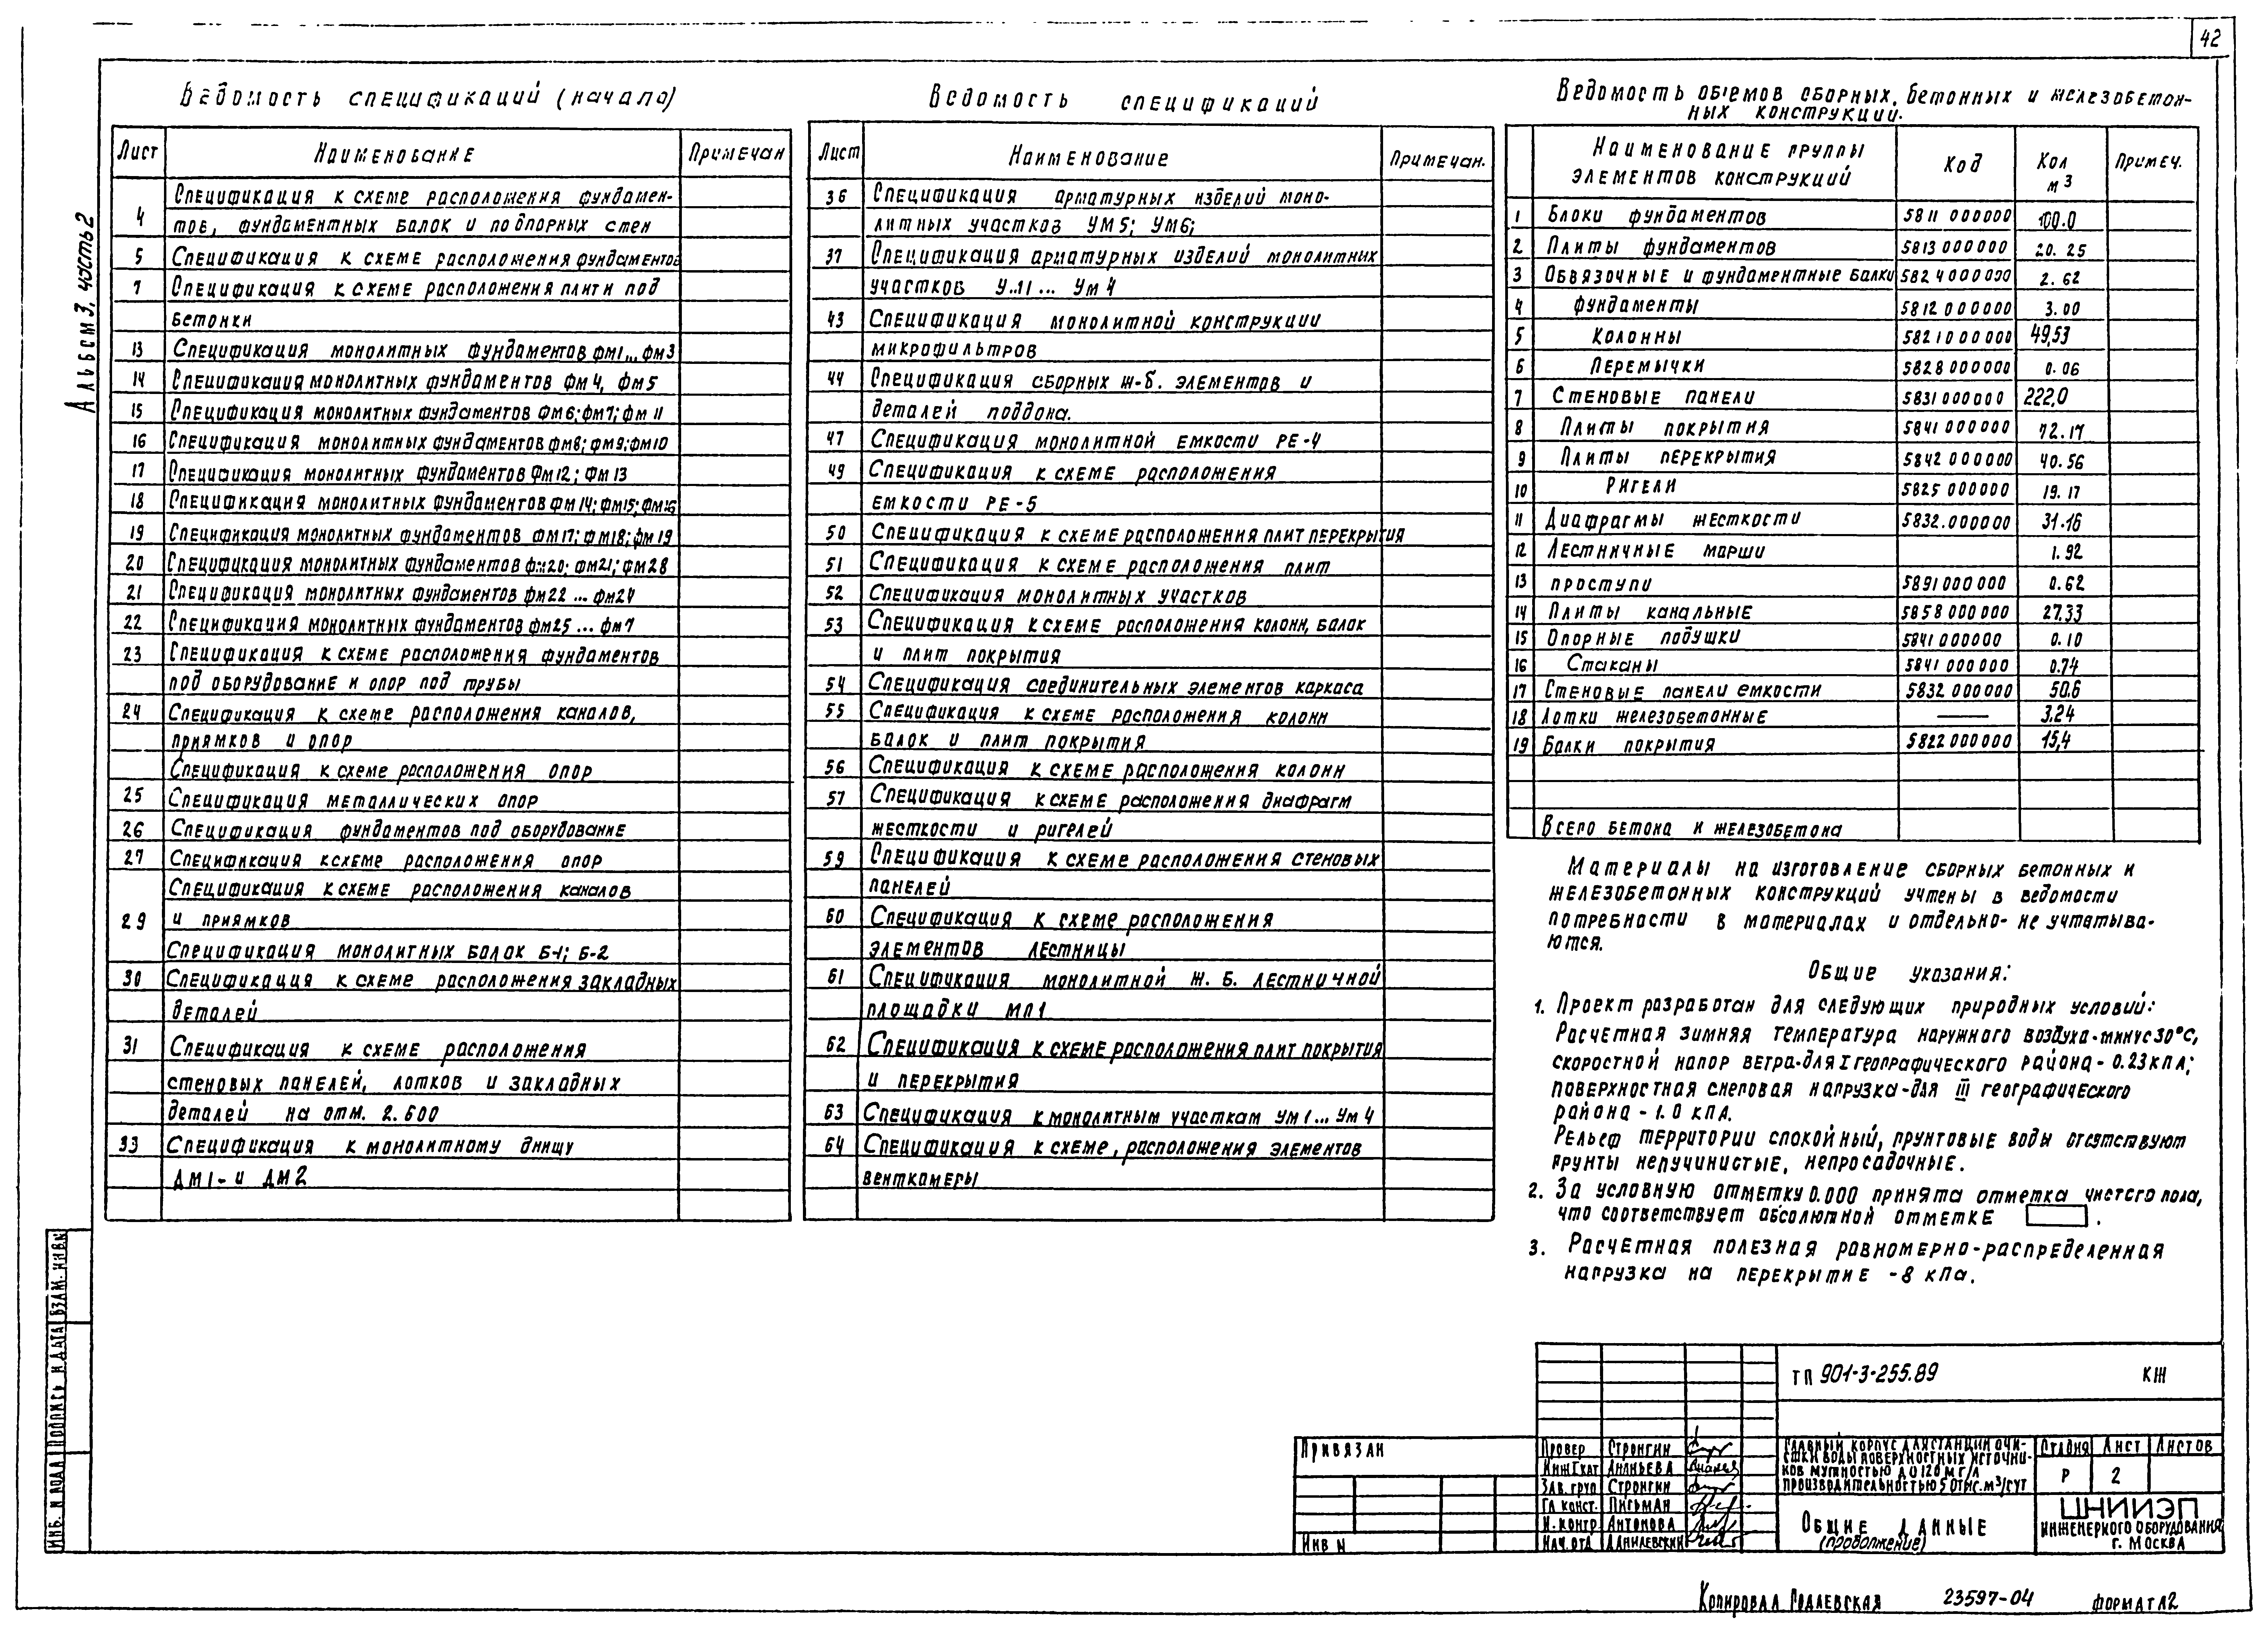 42
Альбом 3, часть 2
Ведомость спецификаций (начало)
Лист Наименование Примечан
Спецификация к схеме расположения фундамен-
4 тов, фундаментных балок и подпорных стен
5 Спецификация к схеме расположения фундаментов
7 Спецификация к схеме расположения плит и под
бетонки
13 Спецификация монолитных фундаментов фм1... фм3
14 Спецификация монолитных фундаментов фм4, фм5
15 Спецификация монолитных фундаментов фм6; фм7; фм 11
16 Спецификация монолитных фундаментов фм8; фм9; фм10
17 Спецификация монолитных фундаментов фм12; фм 13
18 Спецификация монолитных фундаментов фм 14; фм15; фм16
19 Спецификация монолитных фундаментов фм17; фм18; фм 19
20 Спецификация монолитных фундаментов фм20; фм21; фм28
21 Спецификация монолитных фундаментов фм22 ... фм24
22 Спецификация монолитных фундаментов фм25 ... фм7
23 Спецификация к схеме расположения фундаментов
под оборудование и опор под трубы
24 Спецификация к схеме расположения каналов,
приямков и опор
Спецификация к схеме расположения опор
25 Спецификация металлических опор
26 Спецификация фундаментов под оборудование
27 Спецификация к схеме расположения опор
Спецификация к схеме расположения каналов
29 и приямков
Спецификация монолитных балок Б-1; Б-2
30 Спецификация к схеме расположения закладных
деталей
31 Спецификация к схеме расположения
стеновых панелей, лотков и закладных
деталей на отм. 2.600
33 Спецификация к монолитному днищу
ДМ1- и ДМ2
Ведомость спецификаций
Лист Наименование Примечан.
36 Спецификация арматурных изделий моно-
литных участков УМ5; УМ6;
37 Спецификация арматурных изделий монолитных
участков Ум1 ... Ум 4
43 Спецификация монолитной конструкции
микрофильтров
44 Спецификация сборных ж-б. элементов и
деталей поддона.
47 Спецификация монолитной емкости РЕ-4
49 Спецификация к схеме расположения
емкости РЕ-5
50 Спецификация к схеме расположения плит перекрытия
51 Спецификация к схеме расположения плит
52 Спецификация монолитных участков
53 Спецификация к схеме расположения колонн, балок
и плит покрытия
54 Спецификация соединительных элементов каркаса
55 Спецификация к схеме расположения колонн
балок и плит покрытия
56 Спецификация к схеме расположения колонн
57 Спецификация к схеме расположения диафрагм
жесткости и ригелей
59 Спецификация к схеме расположения стеновых
панелей
60 Спецификация к схеме расположения
элементов лестницы
61 Спецификация монолитной ж. б. лестничной
площадки МП1
62 Спецификация к схеме расположения плит покрытия
и перекрытия
63 Спецификация к монолитным участкам Ум 1... Ум 4
64 Спецификация к схеме, расположения элементов
венткамеры
Ведомость объемов сборных, бетонных и железобетон-
ных конструкций.
Наименование группы элементов конструкций Код Кол м3 Примеч.
1 Блоки фундаментов 5811 000000 100.0
2 Плиты фундаментов 5813 000000 20.25
3 Обвязочные и фундаментные балки 5824000000 2.62
4 Фундаменты 5812 000000 3.00
5 Колонны 5821 0000000 49,53
6 Перемычки 5828 000000 0.06
7 Стеновые панели 5831 000000 222,0
8 Плиты покрытия 5841 000000 72.17
9 Плиты перекрытия 5842 000000 40.56
10 Ригели 5825 000000 19.17
11 Диафрагмы жесткости 5832.000000 31.16
12 Лестничные марши 1.92
13 проступи 5891 000 000 0.62
14 Плиты канальные 5858 000000 27.33
15 Опорные подушки 5841 000000 0.10
16 Стаканы 5841 000 000 0.74
17 Стеновые панели емкости 5832 000000 50.6
18 Лотки железобетонные — 3.24
19 Балки покрытия 5822 000000 15,4
Всего бетона и железобетона
Материалы на изготовление сборных бетонных и
железобетонных конструкций учтены в ведомости
потребности в материалах и отдельно- не учитыва-
ются.
Общие указания:
1. Проект разработан для следующих природных условий:
Расчетная зимняя температура наружного воздуха-минус 30°С,
скоростной напор ветра-для I географического района - 0.23 кПа;
поверхностная снеговая нагрузка-для III географического
района - 1.0 кПа.
Рельеф территории спокойный, грунтовые воды отсутствуют
грунты непучинистые, непросадочные.
2. За условную отметку 0.000 принята отметка чистого пола,
что соответствует абсолютной отметке .
3. Расчетная полезная равномерно-распределенная
нагрузка на перекрытие - 8 кПа.
Инв. N подл Подпись и дата Взам. инв N
ТП 901-3-255.89 КЖ
Привязан
Инв N
Провер Стронгин
Инж I кат Ананьева
Зав. груп Стронгин
Гл конст. Письман
Н. контр Антонова
Нач. отд Данилевский
Главный корпус для станции очи-
стки воды поверхностных источни-
ков мутностью до 120 мг/л
производительностью 50 тыс. м3/сут
Стадия Лист Листов
Р 2
Общие данные
(продолжение)
ЦНИИЭП
инженерного оборудования
г. Москва
Копировал 23597-04 Формат А2